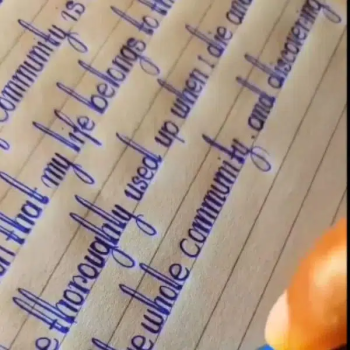 community is
that my life belongs to th
thoroughly used up when i die and
whole community. and discovering